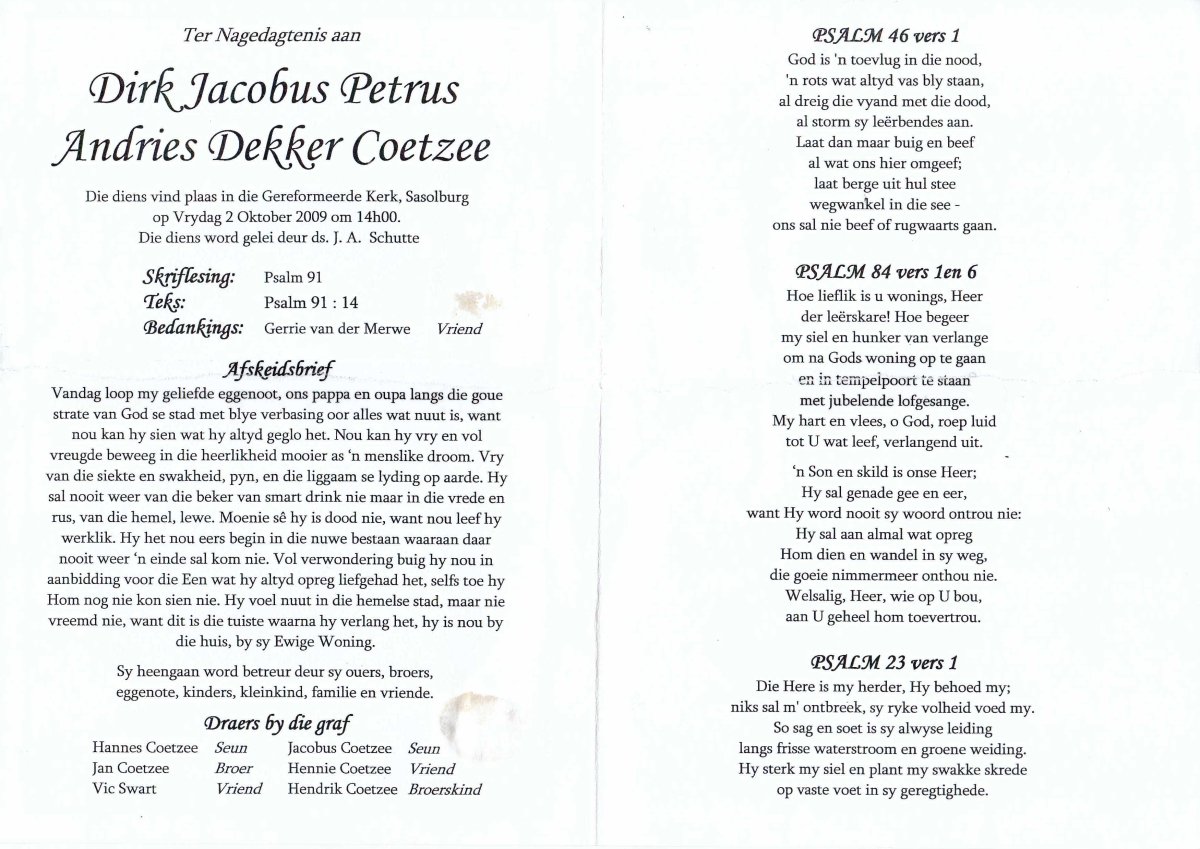 Ter Nagedagtenis aan
Dirk Jacobus Petrus
Andries Dekker Coetzee
Die diens vind plaas in die Gereformeerde Kerk, Sasolburg
op Vrydag 2 Oktober 2009 om 14h00.
Die diens word gelei deur ds. J. A. Schutte
Skriflesing: Psalm 91
Teks: Psalm 91 : 14
Bedankings: Gerrie van der Merwe Vriend
Afskeidsbrief
Vandag loop my geliefde eggenoot, ons pappa en oupa langs die goue
strate van God se stad met blye verbasing oor alles wat nuut is, want
nou kan hy sien wat hy altyd geglo het. Nou kan hy vry en vol
vreugde beweeg in die heerlikheid mooier as ‘n menslike droom. Vry
van die siekte en swakheid, pyn, en die liggaam se lyding op aarde. Hy
sal nooit weer van die beker van smart drink nie maar in die vrede en
rus, van die hemel, lewe. Moenie sê hy is dood nie, want nou leef hy
werklik. Hy het nou eers begin in die nuwe bestaan waaraan daar
nooit weer ‘n einde sal kom nie. Vol verwondering buig hy nou in
aanbidding voor die Een wat hy altyd opreg liefgehad het, selfs toe hy
Hom nog nie kon sien nie. Hy voel nuut in die hemelse stad, maar nie
vreemd nie, want dit is die tuiste waarna hy verlang het, hy is nou by
die huis, by sy Ewige Woning.
Sy heengaan word betreur deur sy ouers, broers,
eggenote, kinders, kleinkind, familie en vriende.
Draers by die graf
Hannes Coetzee Seun Jacobus Coetzee Seun
Jan Coetzee Broer Hennie Coetzee Vriend
Vic Swart Vriend Hendrik Coetzee Broerskind
PSALM 46 vers 1
God is 'n toevlug in die nood,
'n rots wat altyd vas bly staan,
al dreig die vyand met die dood,
al storm sy leërbendes aan.
Laat dan maar buig en beef
al wat ons hier omgeef;
laat berge uit hul stee
wegwankel in die see -
ons sal nie beef of rugwaarts gaan.
PSALM 84 vers 1en 6
Hoe lieflik is u wonings, Heer
der leërskare! Hoe begeer
my siel en hunker van verlange
om na Gods woning op te gaan
en in tempelpoort te staan
met jubelende lofgesange.
My hart en vlees, o God, roep luid
tot U wat leef, verlangend uit.
‘n Son en skild is onse Heer;
Hy sal genade gee en eer,
want Hy word nooit sy woord ontrou nie:
Hy sal aan almal wat opreg
Hom dien en wandel in sy weg,
die goeie nimmermeer onthou nie.
Welsalig, Heer, wie op U bou,
aan U geheel hom toevertrou.
PSALM 23 vers 1
Die Here is my herder, Hy behoed my;
niks sal m' ontbreek, sy ryke volheid voed my.
So sag en soet is sy alwyse leiding
langs frisse waterstroom en groene weiding.
Hy sterk my siel en plant my swakke skrede
op vaste voet in sy geregtighede.